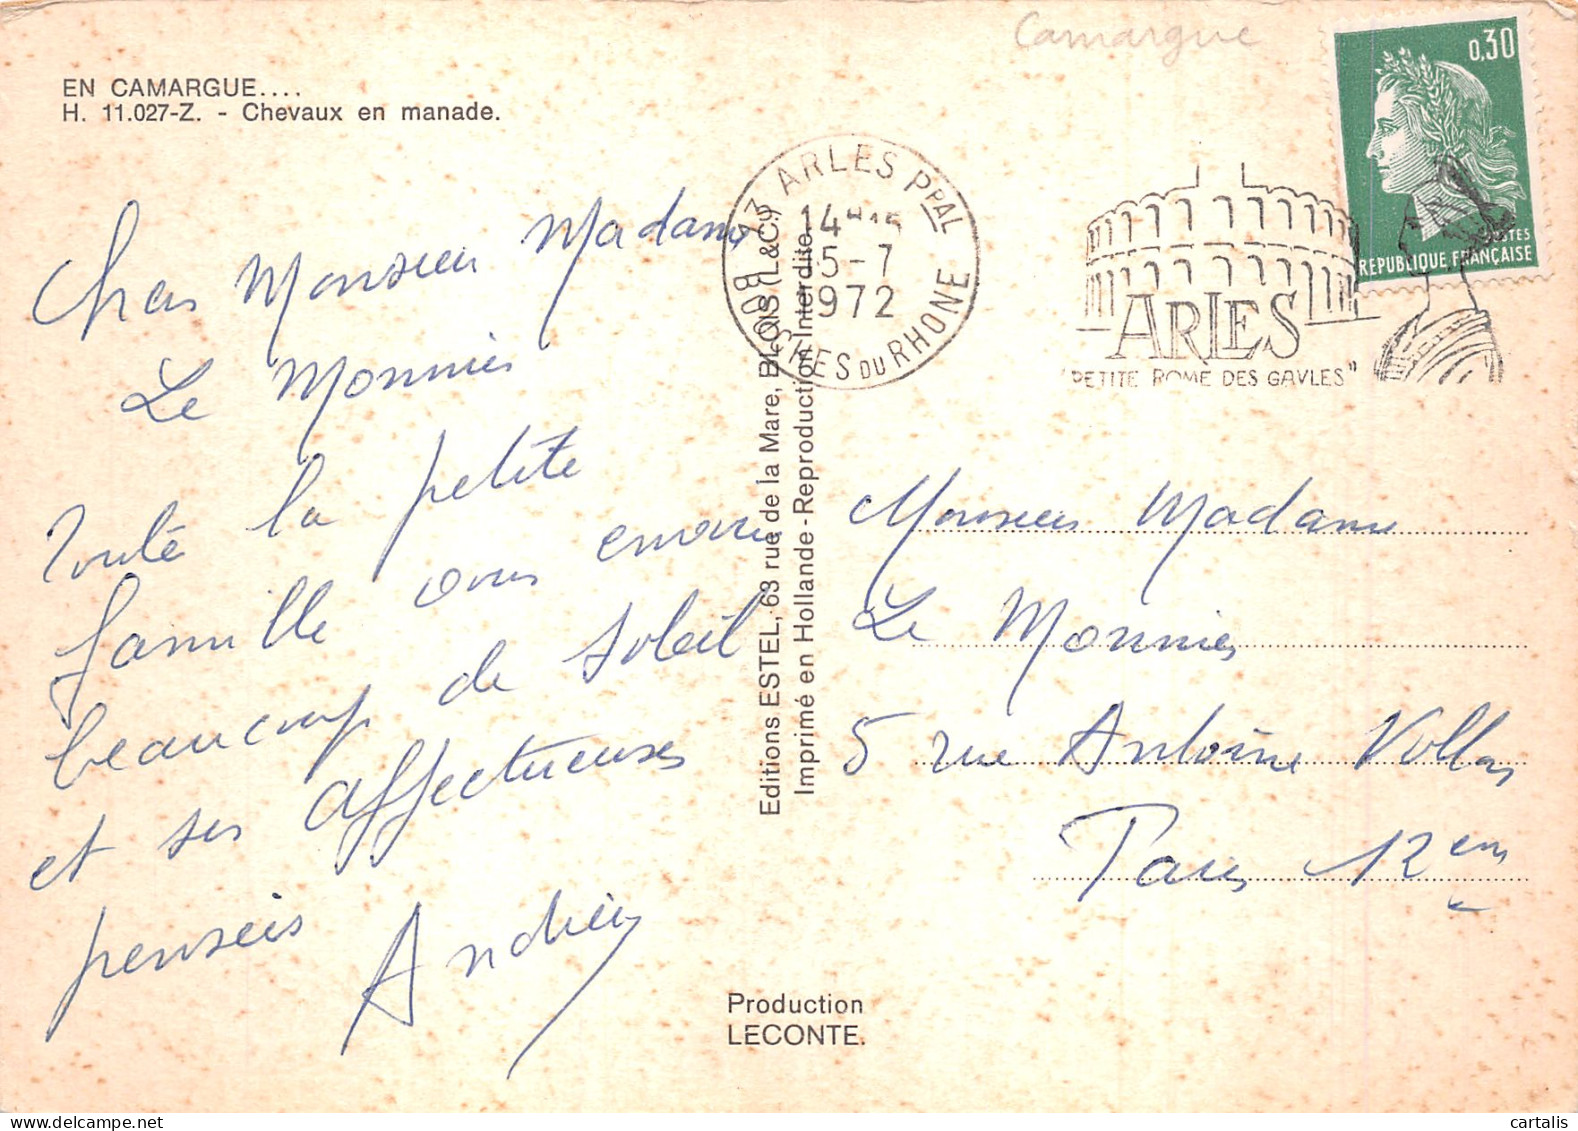 Camargue
0,30
POSTES
REPUBLIQUE FRANÇAISE
EN CAMARGUE....
H. 11.027-Z. - Chevaux en manade.
13 ARLES PPAL
14H15
5-7
1972
BOUCHES DU RHONE
ARLES
"PETITE ROME DES GAVLES"
Chers Monsieur Madame
Le Monnier
Toute la petite
famille vous envoie
beaucoup de soleil
et ses affectueuses
pensées
Editions ESTEL, 63 rue de la Mare, BLOIS (L.&C.)
Imprimé en Hollande - Reproduction Interdite.
Monsieur Madame
Le Monnier
5 rue Antoine Vollon
Paris 12em
Production
LECONTE.
cartalis